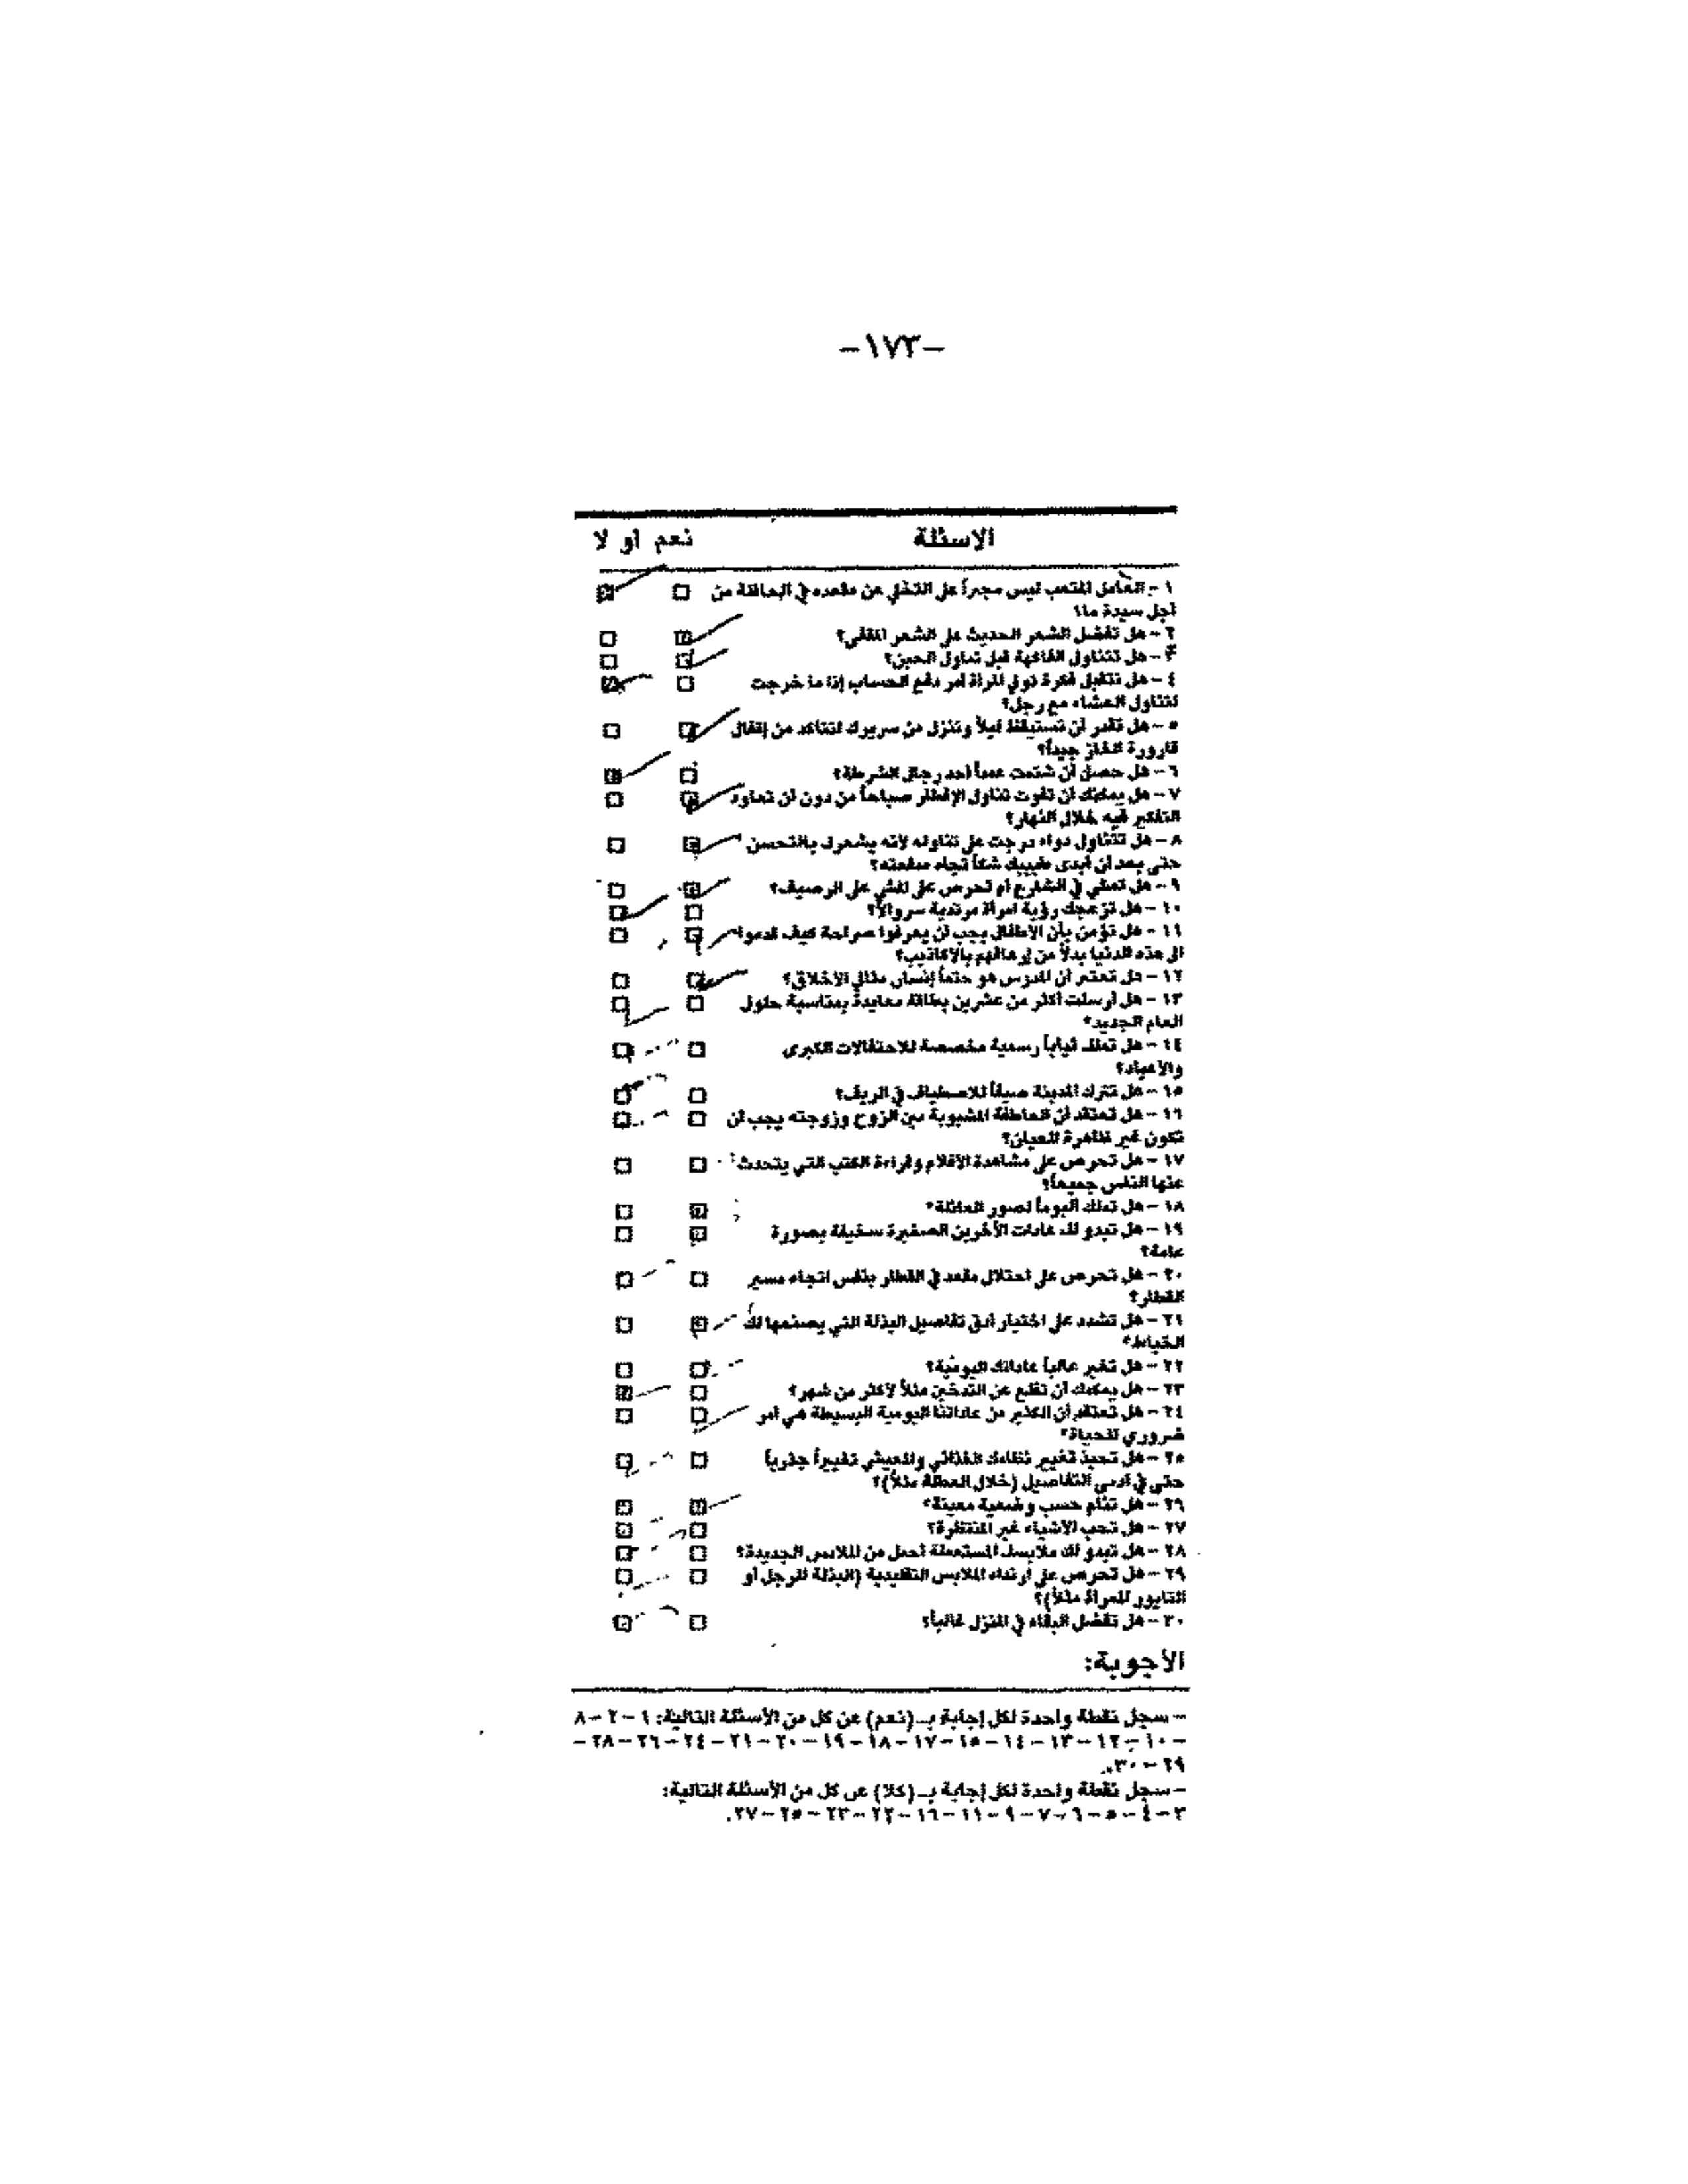 -١٧٣-
الاسئلة نعم او لا
١ - العامل المتعب ليس مجبراً على التخلي عن مقعده في الحافلة من
أجل سيدة ما؟
٢ - هل تفضل الشعر الحديث على الشعر المقفى؟
٣ - هل تتناول الفاكهة قبل تناول الجبن؟
٤ - هل تتقبل فكرة تولي المرأة أمر دفع الحساب إذا ما خرجت
لتناول العشاء مع رجل؟
٥ - هل تقدر أن تستيقظ ليلاً وتنزل من سريرك لتتأكد من إقفال
قارورة الغاز جيداً؟
٦ - هل حصل أن شتمت عمداً أحد رجال الشرطة؟
٧ - هل يمكنك أن تفوت تناول الإفطار صباحاً من دون أن تعاود
التفكير فيه خلال النهار؟
٨ - هل تتناول دواء درجت على تناوله لأنه يشعرك بالتحسن
حتى بعد أن أبدى طبيبك شكاً تجاه منفعته؟
٩ - هل تمشي في الشارع أم تحرص على المشي على الرصيف؟
١٠ - هل تزعجك رؤية امرأة مرتدية سروالاً؟
١١ - هل تؤمن بأن الأطفال يجب أن يعرفوا صراحة كيف قدموا
الى هذه الدنيا بدلاً من إرهاقهم بالأكاذيب؟
١٢ - هل تعتبر أن المدرس هو حتماً إنسان مثالي الأخلاق؟
١٣ - هل أرسلت أكثر من عشرين بطاقة معايدة بمناسبة حلول
العام الجديد؟
١٤ - هل تملك ثياباً رسمية مخصصة للاحتفالات الكبرى
والأعياد؟
١٥ - هل تترك المدينة صيفاً للاصطياف في الريف؟
١٦ - هل تعتقد أن العاطفة المشبوبة بين الزوج وزوجته يجب أن
تكون غير ظاهرة للعيان؟
١٧ - هل تحرص على مشاهدة الأفلام وقراءة الكتب التي يتحدث
عنها الناس جميعاً؟
١٨ - هل تملك ألبوماً لصور العائلة؟
١٩ - هل تبدو لك عادات الآخرين الصغيرة سخيفة بصورة
عامة؟
٢٠ - هل تحرص على احتلال مقعد في القطار بنفس اتجاه مسير
القطار؟
٢١ - هل تشدد على اختيار أدق تفاصيل البذلة التي يصنعها لك
الخياط؟
٢٢ - هل تغير غالباً عاداتك اليومية؟
٢٣ - هل يمكنك أن تقلع عن التدخين مثلاً لأكثر من شهر؟
٢٤ - هل تعتقد أن الكثير من عاداتنا اليومية البسيطة هي أمر
ضروري للحياة؟
٢٥ - هل تحبذ تغيير نظامك الغذائي والمعيشي تغييراً جذرياً
حتى في أدنى التفاصيل (خلال العطلة مثلاً)؟
٢٦ - هل تنام حسب وضعية معينة؟
٢٧ - هل تحب الأشياء غير المنتظرة؟
٢٨ - هل تبدو لك ملابسك المستعملة أجمل من الملابس الجديدة؟
٢٩ - هل تحرص على ارتداء الملابس التقليدية (البذلة للرجل أو
التايور للمرأة مثلاً)؟
٣٠ - هل تفضل البقاء في المنزل غالباً؟
الأجوبة:
- سجل نقطة واحدة لكل إجابة بـ (نعم) عن كل من الأسئلة التالية: ١ - ٢ - ٨
- ١٠ - ١٢ - ١٣ - ١٤ - ١٥ - ١٧ - ١٨ - ١٩ - ٢٠ - ٢١ - ٢٤ - ٢٦ - ٢٨ -
٢٩ - ٣٠.
- سجل نقطة واحدة لكل إجابة بـ (كلا) عن كل من الأسئلة التالية:
٣ - ٤ - ٥ - ٦ - ٧ - ٩ - ١١ - ١٦ - ٢٢ - ٢٣ - ٢٥ - ٢٧.